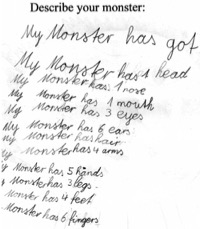 Describe your monster:
My Monster has got
My Monster has 1 head
My Monster has 1 nose
My Monster has 1 mouth
My Monster has 3 eyes
My Monster has 6 ears
My Monster has hair
My Monster has 4 arms
My Monster has 5 hands
Monster has 3 legs
Monster has 4 feet
Monster has 6 fingers